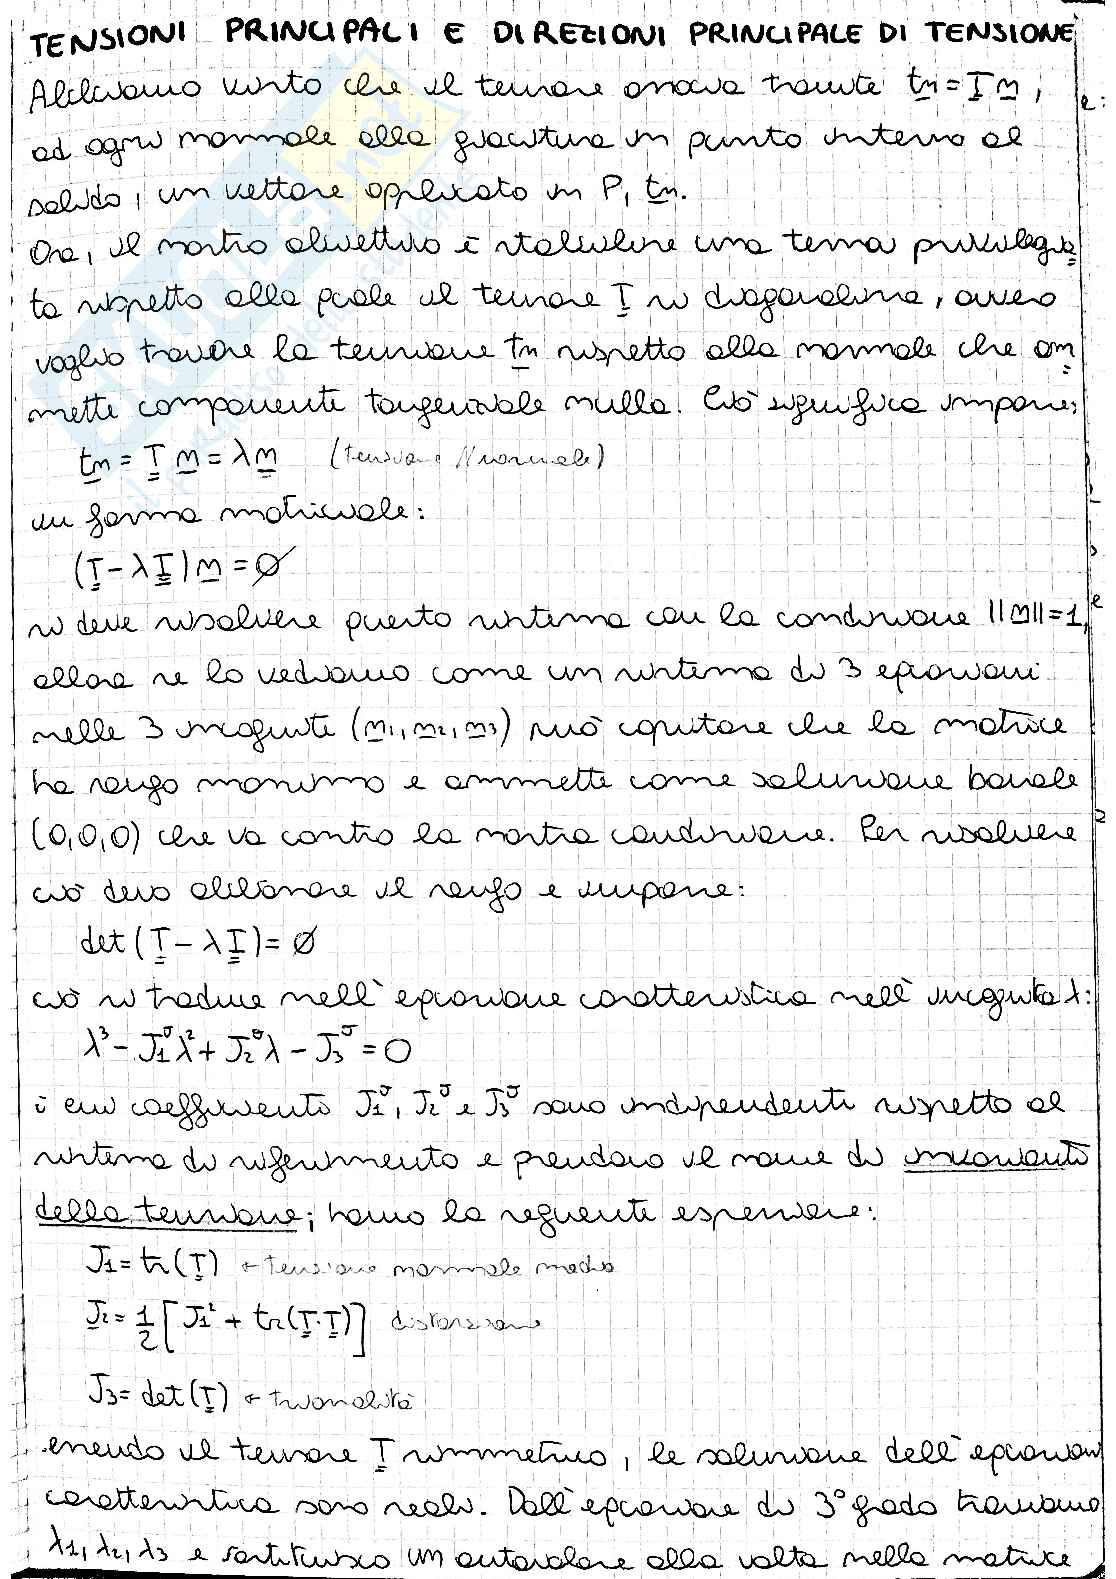 TENSIONI PRINCIPALI E DIREZIONI PRINCIPALE DI TENSIONE
Abbiamo visto che il tensore associa tramite tn = T n,
ad ogni normale alla giacitura in punto interno al
solido, un vettore applicato in P, tn.
Ora, il nostro obiettivo è stabilire una terna privilegia
ta rispetto alla quale il tensore T si diagonalizza, ovvero
voglio trovare la tensione tn rispetto alla normale che am
mette componente tangenziale nulla. Ciò significa imporre:
tn = T n = λ n (tensione Normale)
in forma matriciale:
(T - λ I) n = ∅
si deve risolvere questo sistema con la condizione ||n|| = 1,
allora se lo vediamo come un sistema di 3 equazioni
nelle 3 incognite (n1, n2, n3) può capitare che la matrice
ha rango massimo e ammette come soluzione banale
(0,0,0) che va contro la nostra condizione. Per risolvere
ciò devo abbassare il rango e impone:
det (T - λ I) = ∅
ciò si traduce nell'equazione caratteristica nell'incognita λ:
λ³ - J1^σ λ² + J2^σ λ - J3^σ = 0
i cui coefficienti J1^σ, J2^σ e J3^σ sono indipendenti rispetto al
sistema di riferimento e prendono il nome di invarianti
della tensione; hanno la seguente espressione:
J1 = tr(T) ← tensione normale media
J2 = 1/2 [J1² + tr(T·T)] distorsione
J3 = det(T) ← triassialità
essendo il tensore T simmetrico, le soluzione dell'equazion
caratteristica sono reali. Dall'equazione di 3° grado troviamo
λ1, λ2, λ3 e sostituisco un autovalore alla volta nella matrice